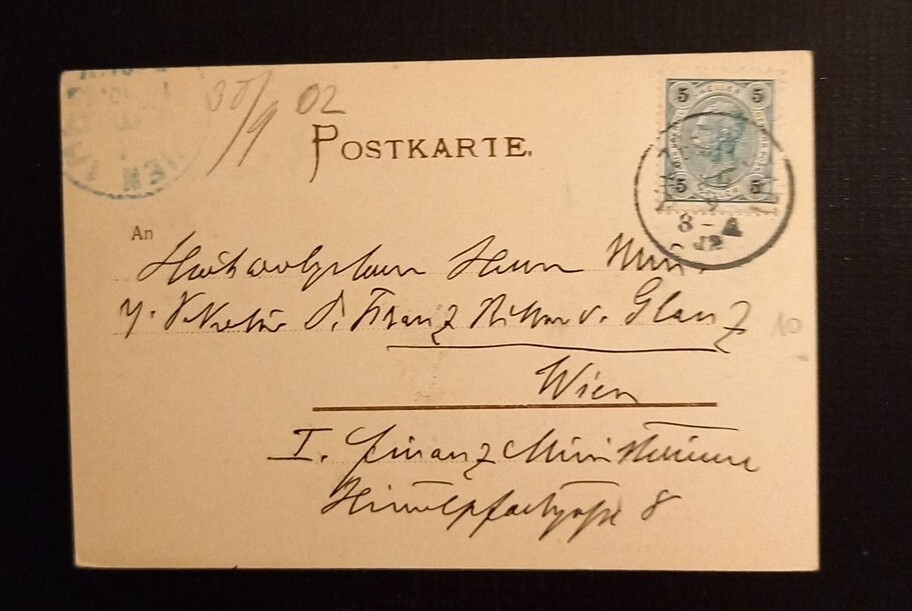 30/9 02
POSTKARTE.
5 HELLER 5
5 HELLER 5
8-A
WIEN
An
Hochwohlgeboren Herrn Min.
Franz Ritter v. Glanz
Wien
I. Finanz Ministerium
Himmelpfortgasse 8
10